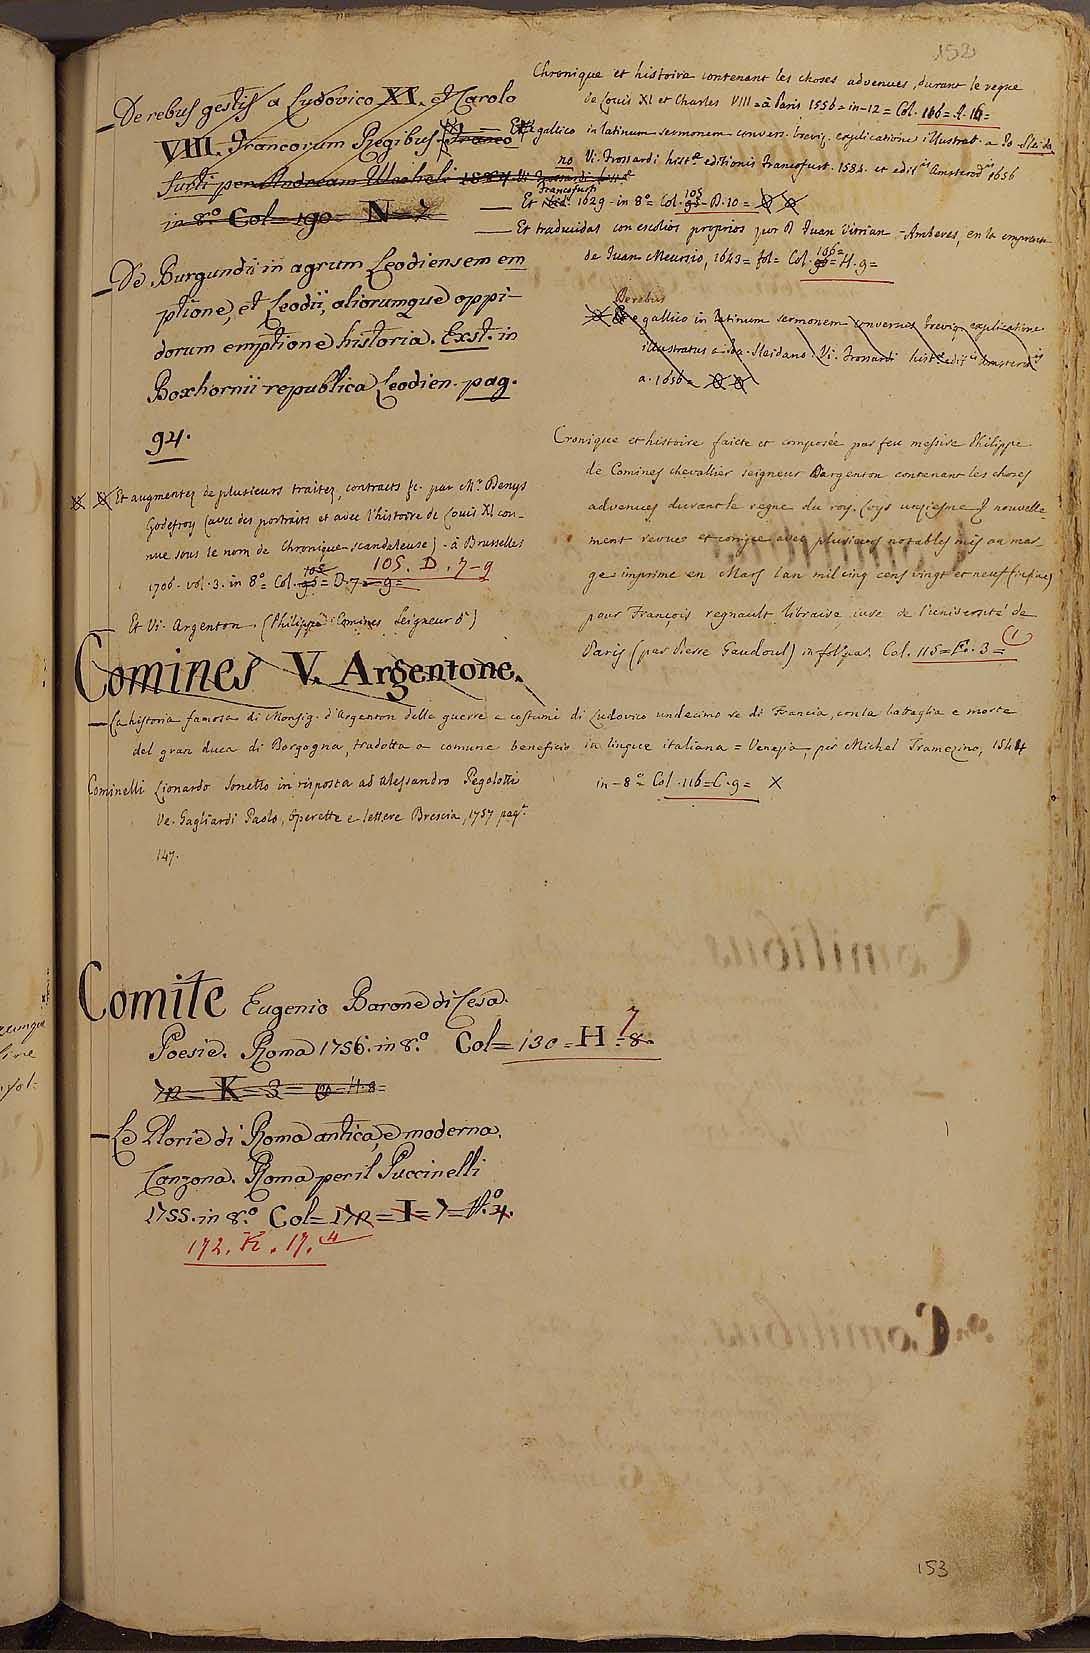 152
De rebus gestis a Ludovico XI. et Carolo
VIII. Francorum Regibus. Franco
furti per Andream Wecheli
in 8.º Col= 190= N=7
De Burgundii in agrum Leodiensem em
ptione, et Leodii, aliorumque oppi-
dorum emptione historia. Exst. in
Boxhornii republica Leodien. pag.
94.
Et augmentez de plusieurs traitez, contracts &c. par Mr. Denys
Godefroy (avec des portraits et avec l'histoire de Louis XI con-
nue sous le nom de Chronique scandaleuse) - à Brusselles
1706. vol. 3. in 8º= Col. 105 = D. 7=9=
105. D. 7-9
Et Vi. Argenton. (Philippe Comines Seigneur d')
Comines V. Argentone.
Chronique et histoire contenant les choses advenues, durant le regne
de Louis XI et Charles VIII = à Paris 1556 = in-12 = Col. 116= A. 16=
gallico in latinum sermonem convers. breviq. explicatione illustrat. a Jo Sleida
no Vi. Frossardi histª editionis Francofurt. 1584. et edit.is Amsterod.is 1656
Francofurti
Et 1629 - in 8º= Col. 105 - D. 10 =
Et traducidas con escolios proprios por D Juan Vitrian - Amberes, en la emprenta
de Juan Meursio, 1643= fol= Col. 106= H. 9=
De rebus
e gallico in latinum sermonem conversus breviq. explicatione
illustratus a Jo. Sleidano. Vi. Frossardi hist.æ edit.is Amsterod.is
a. 1656=
Cronique et histoire faicte et composée par feu messire Philippe
de Comines chevallier seigneur Dargenton contenant les choses
advenues durant le regne du roy Loys unziesme & nouvelle-
ment revue et corrigee avec plusieurs notables mis au mar-
ge imprime en Mars lan mil cinq cens vingt et neuf
pour François regnault libraire iure de l'université de
Paris (par Pierre Gaudoul) in fol. Col. 115= F. 3=
(1)
La historia famosa di Monsig. d'Argenton delle guerre e costumi di Ludovico undecimo re di Francia, con la battaglia e morte
del gran duca di Borgogna, tradotta a comune beneficio in lingua italiana = Venezia, per Michel Tramezino, 1544
in-8º= Col. 116=C. 9= X
Cominelli Lionardo Sonetto in risposta ad Alessandro Pegolotti
Ve. Gagliardi Paolo, Operette e lettere Brescia, 1757 pag.
147.
Comite Eugenio Barone di Cesa.
Poesie. Roma 1756. in 8.º Col= 130= H= 8.
7
72= K= 3= H. 8=
Le Glorie di Roma antica, e moderna.
Canzona. Roma per il Puccinelli
1755. in 8.º Col= 172= I= 7= Nº. 4.
172. K. 17. 4
153